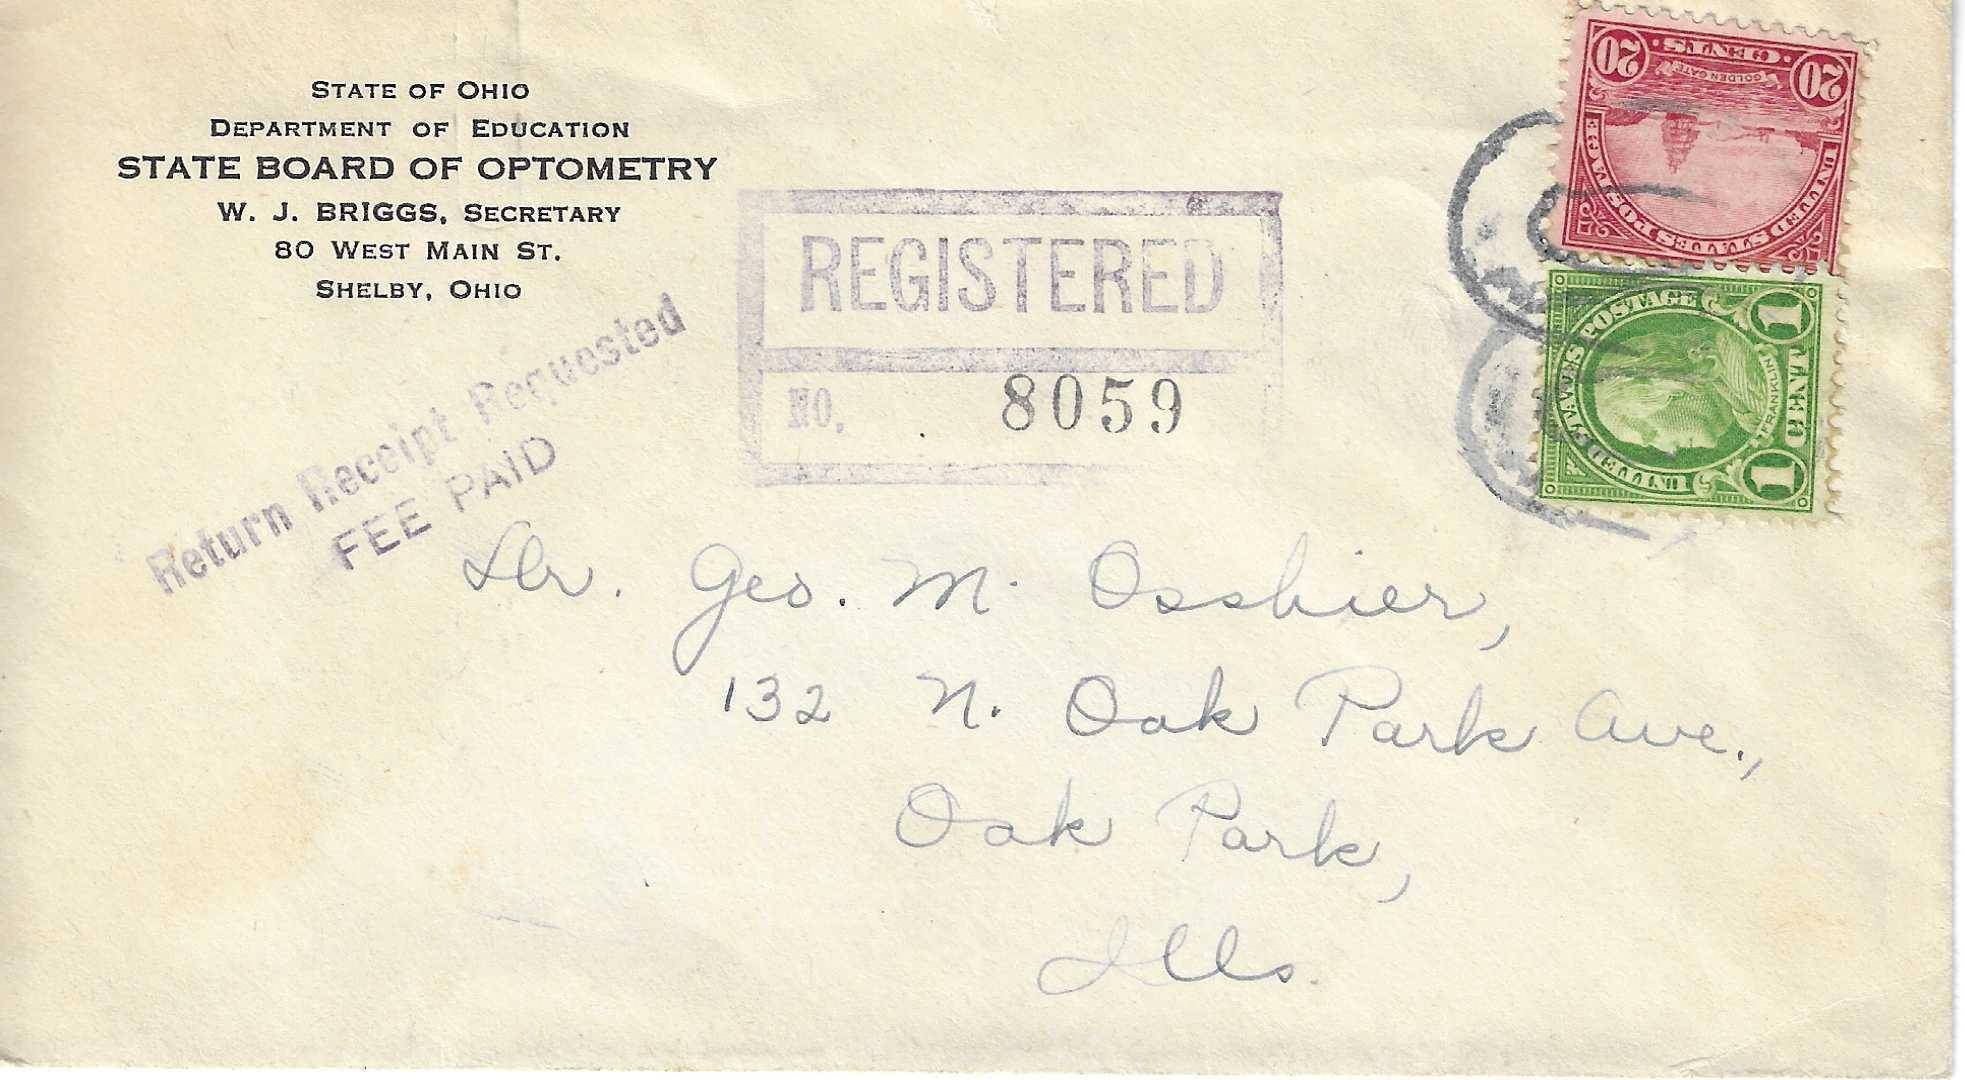 STATE OF OHIO
DEPARTMENT OF EDUCATION
STATE BOARD OF OPTOMETRY
W. J. BRIGGS, SECRETARY
80 WEST MAIN ST.
SHELBY, OHIO
Return Receipt Requested
FEE PAID
REGISTERED
NO. 8059
UNITED STATES POSTAGE
GOLDEN GATE
20 CENTS 20
UNITED STATES POSTAGE
FRANKLIN
1 CENT 1
Dr. Geo. M.
132 N. Oak Park Ave.,
Oak Park,
Ills.